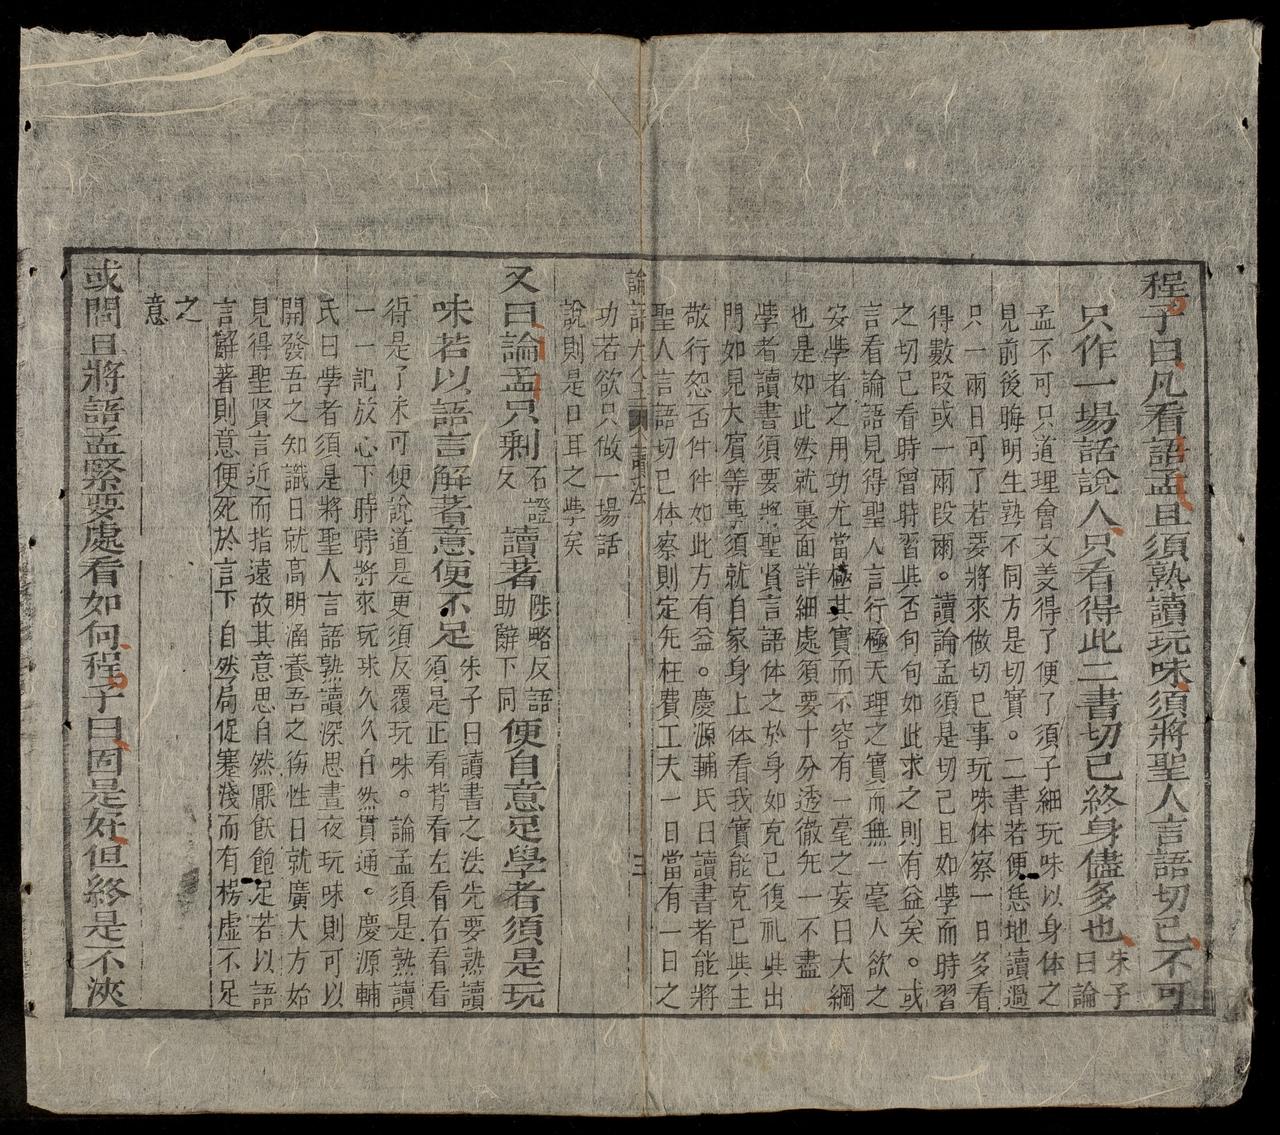 程子曰凡看語孟且須熟讀玩味須將聖人言語切己不可
只作一場話說人只看得此二書切己終身儘多也朱子曰論
孟不可只道理會文義得了便了須子細玩味以身體之
見前後晦明生熟不同方是切實。二書若便恁地讀過
只一兩日可了若要將來做切己事玩味体察一日多看
得數段或一兩段爾。讀論孟須是切己且如學而時習
之切己看時曾時習與否句句如此求之則有益矣。或
言看論語見得聖人言行極天理之實而無一毫人欲之
安學者之用功尤當極其實而不容有一毫之妄曰大綱
也是如此然就裏面詳細處須要十分透徹无一不盡
學者讀書須要將聖賢言語体之於身如克己復礼與出
門如見大賓等事須就自家身上体看我實能克己與主
敬行恕否件件如此方有益。慶源輔氏曰讀書者能將
聖人言語切己体察則定无枉費工夫一日當有一日之
論語大全 讀法 三
功若欲只做一場話
說則是口耳之學矣
又曰論孟只剩石證切讀著陟略反語助辭下同便自意足學者須是玩
味若以語言解著意便不足朱子曰讀書之法先要熟讀
須是正看背看左看右看看
得是了未可便說道是更須反覆玩味。論孟須是熟讀
一一記放心下時時將來玩味久久自然貫通。慶源輔
氏曰學者須是將聖人言語熟讀深思晝夜玩味則可以
開發吾之知識日就高明涵養吾之德性日就廣大方始
見得聖賢言近而指遠故其意思自然厭飫飽足若以語
言解著則意便死於言下自然局促蹇淺而有楞虛不足
之
意
或問且將語孟緊要處看如何程子曰固是好但終是不浹